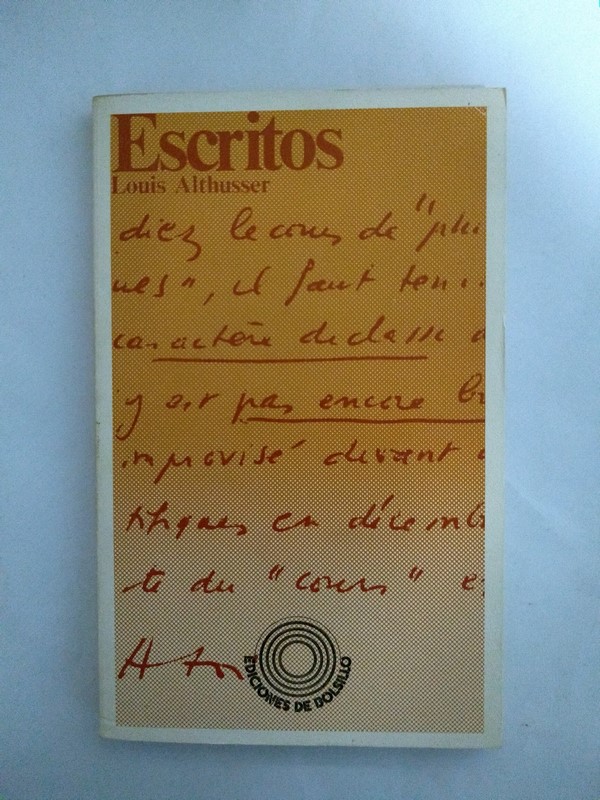 Escritos
Louis Althusser
diez le cours de "phi
ues", il faut teni
caractère de classe
y est pas encore
improvisé devant
tifiques en décemb
te du "cours" e
EDICIONES DE BOLSILLO